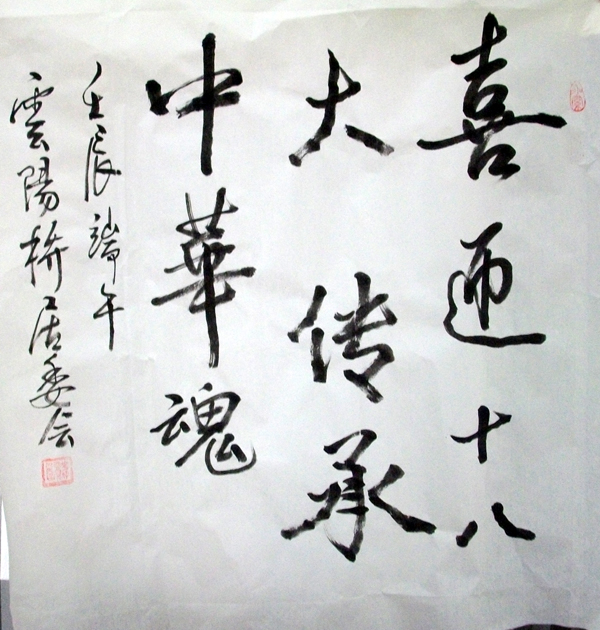 喜迎十八
大传承
中華魂
壬辰端午
雲陽桥居委会